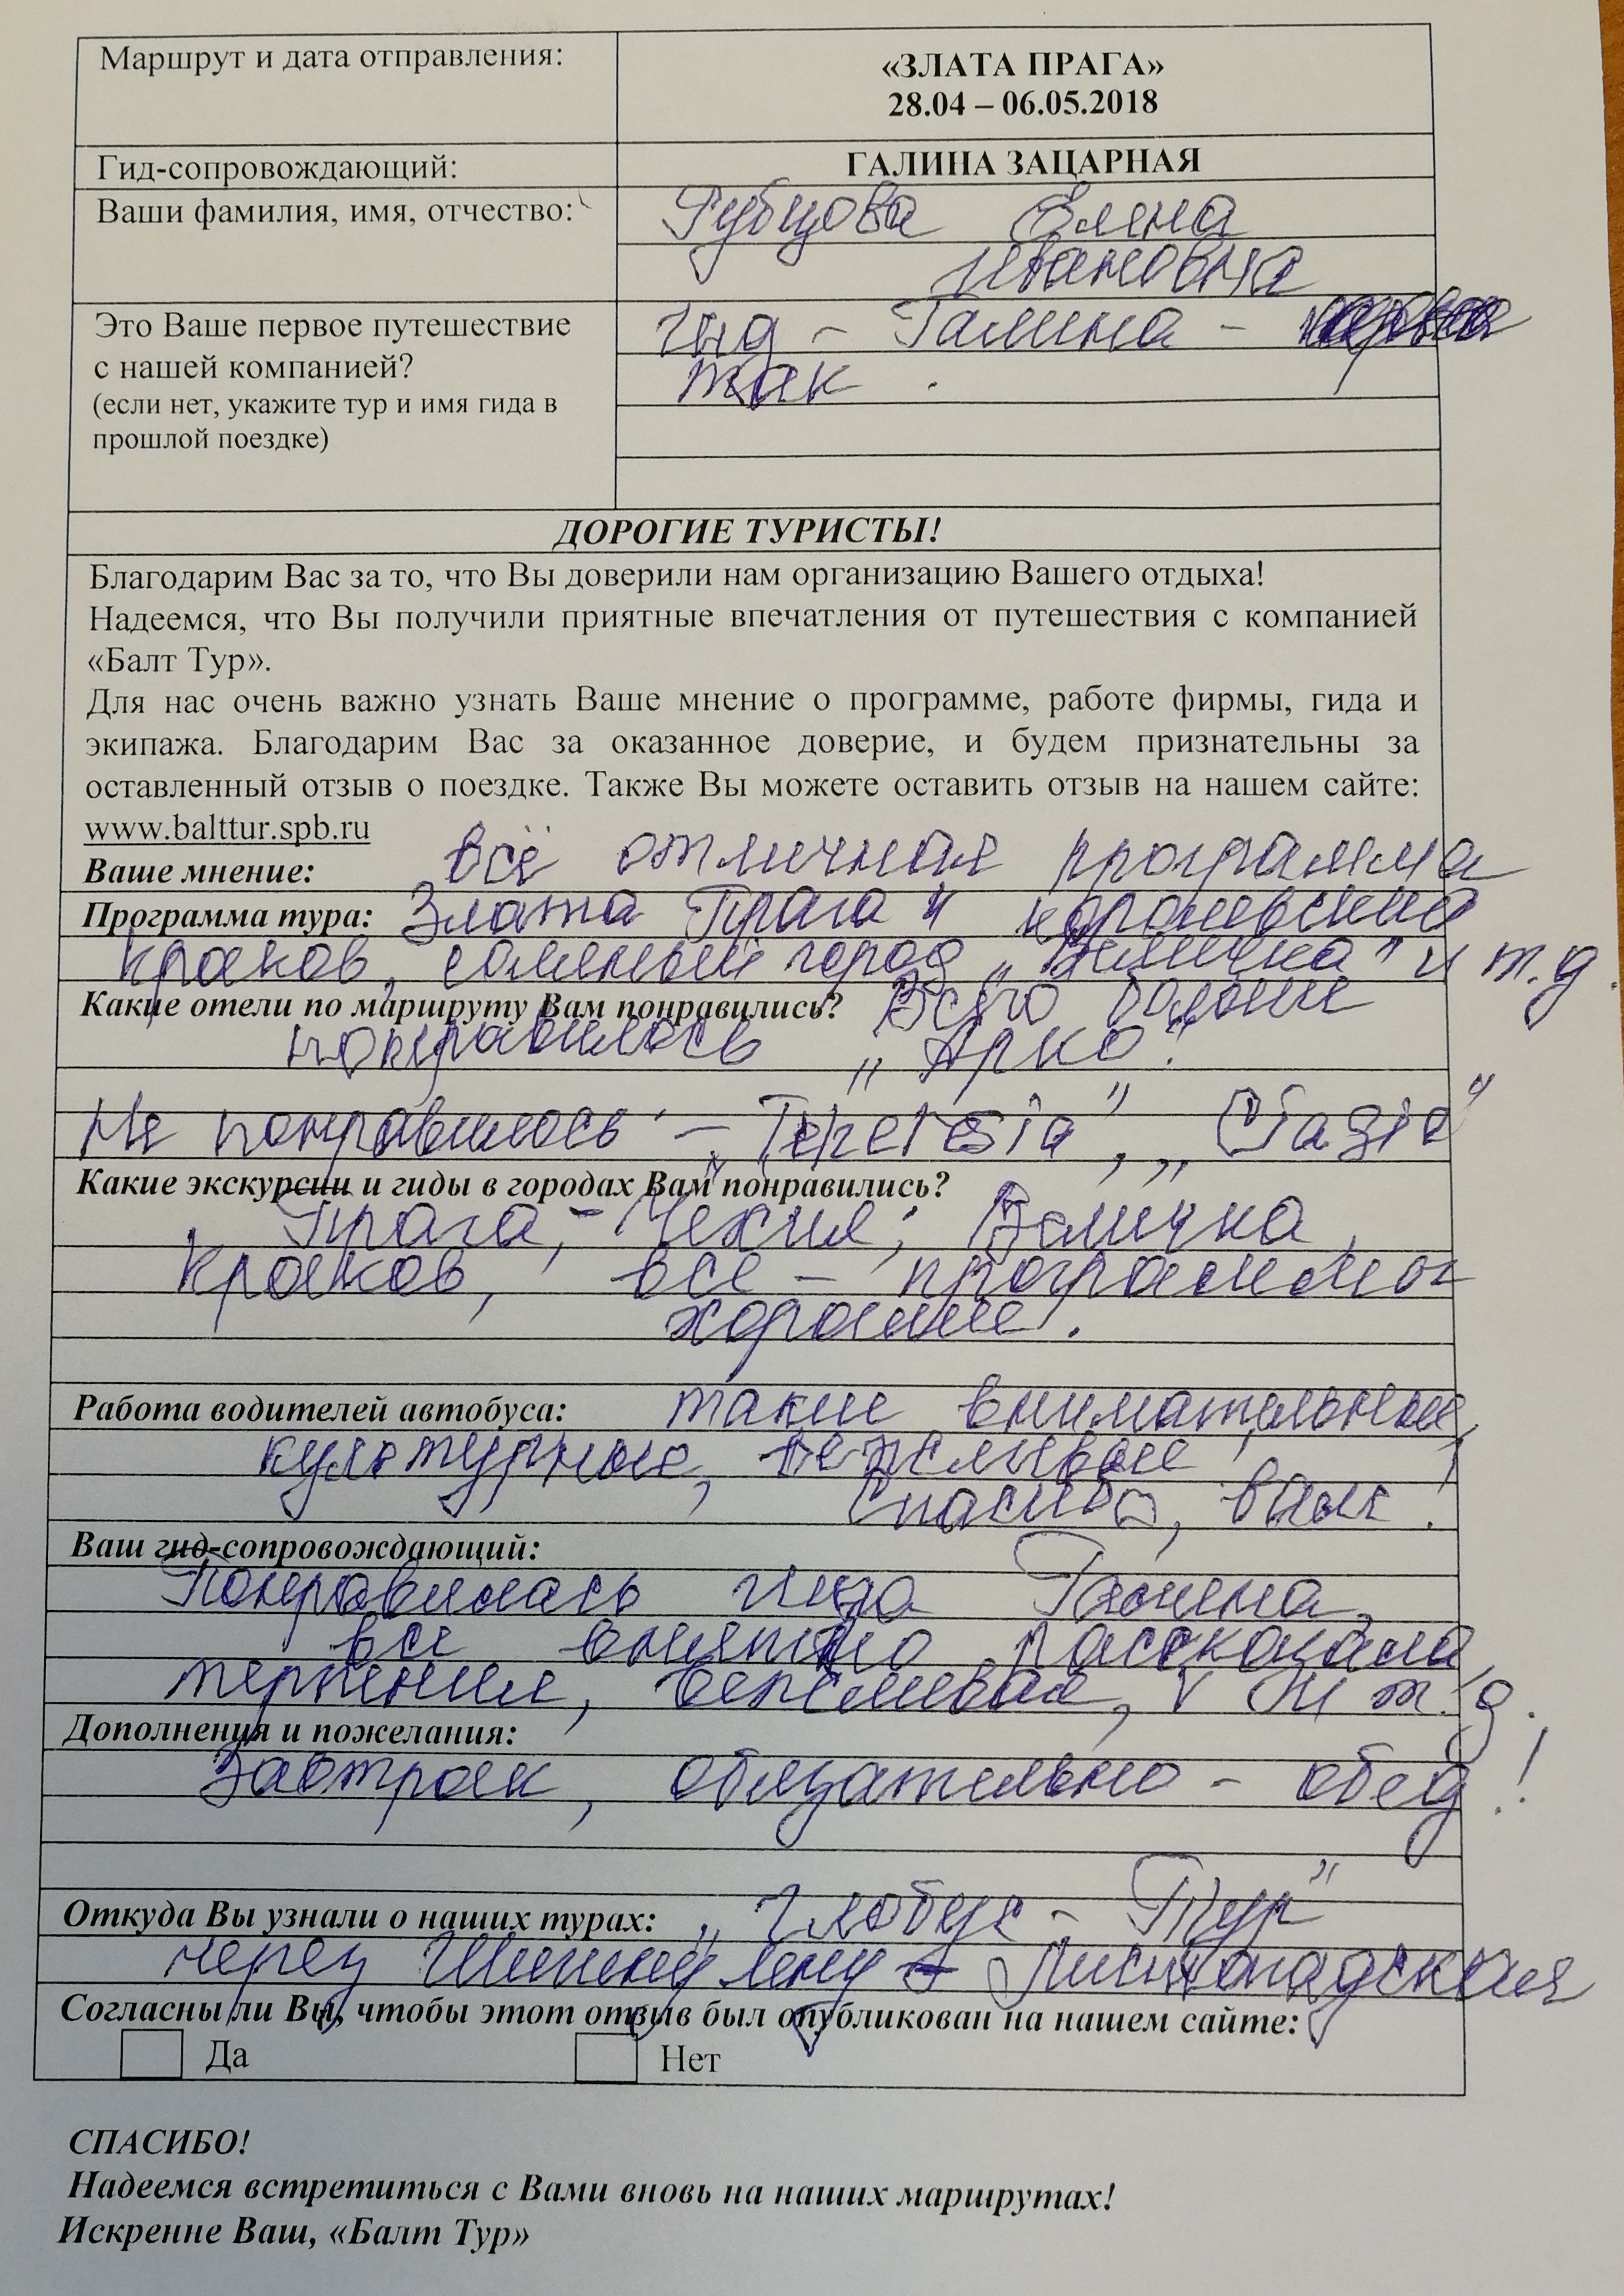 Маршрут и дата отправления:
«ЗЛАТА ПРАГА»
28.04 – 06.05.2018
Гид-сопровождающий:
ГАЛИНА ЗАЦАРНАЯ
Ваши фамилия, имя, отчество:
Рубцова Елена
Ивановна
Это Ваше первое путешествие
с нашей компанией?
(если нет, укажите тур и имя гида в
прошлой поездке)
Гид - Галина -
так.
ДОРОГИЕ ТУРИСТЫ!
Благодарим Вас за то, что Вы доверили нам организацию Вашего отдыха!
Надеемся, что Вы получили приятные впечатления от путешествия с компанией
«Балт Тур».
Для нас очень важно узнать Ваше мнение о программе, работе фирмы, гида и
экипажа. Благодарим Вас за оказанное доверие, и будем признательны за
оставленный отзыв о поездке. Также Вы можете оставить отзыв на нашем сайте:
www.balttur.spb.ru
Ваше мнение: всё отличная программа
Программа тура: Злата Прага и королевский
Краков, соляный город „Величка" и т.д.
Какие отели по маршруту Вам понравились? Всего больше
понравилось „Арко".
Не понравилось -
Какие экскурсии и гиды в городах Вам понравились?
Прага, - Чехия; Величка,
Краков, все - программы
хорошие.
Работа водителей автобуса: такие внимательные,
культурные, вежливые!
Спасибо, вам!
Ваш гид-сопровождающий:
Понравилась гида Галина,
все внятно рассказала,
вежливая, и т.д.
Дополнения и пожелания:
Завтрак, обязательно - обед!
Откуда Вы узнали о наших турах: „Глобус - Тур"
через Лену
Согласны ли Вы, чтобы этот отзыв был опубликован на нашем сайте:
Да Нет
СПАСИБО!
Надеемся встретиться с Вами вновь на наших маршрутах!
Искренне Ваш, «Балт Тур»